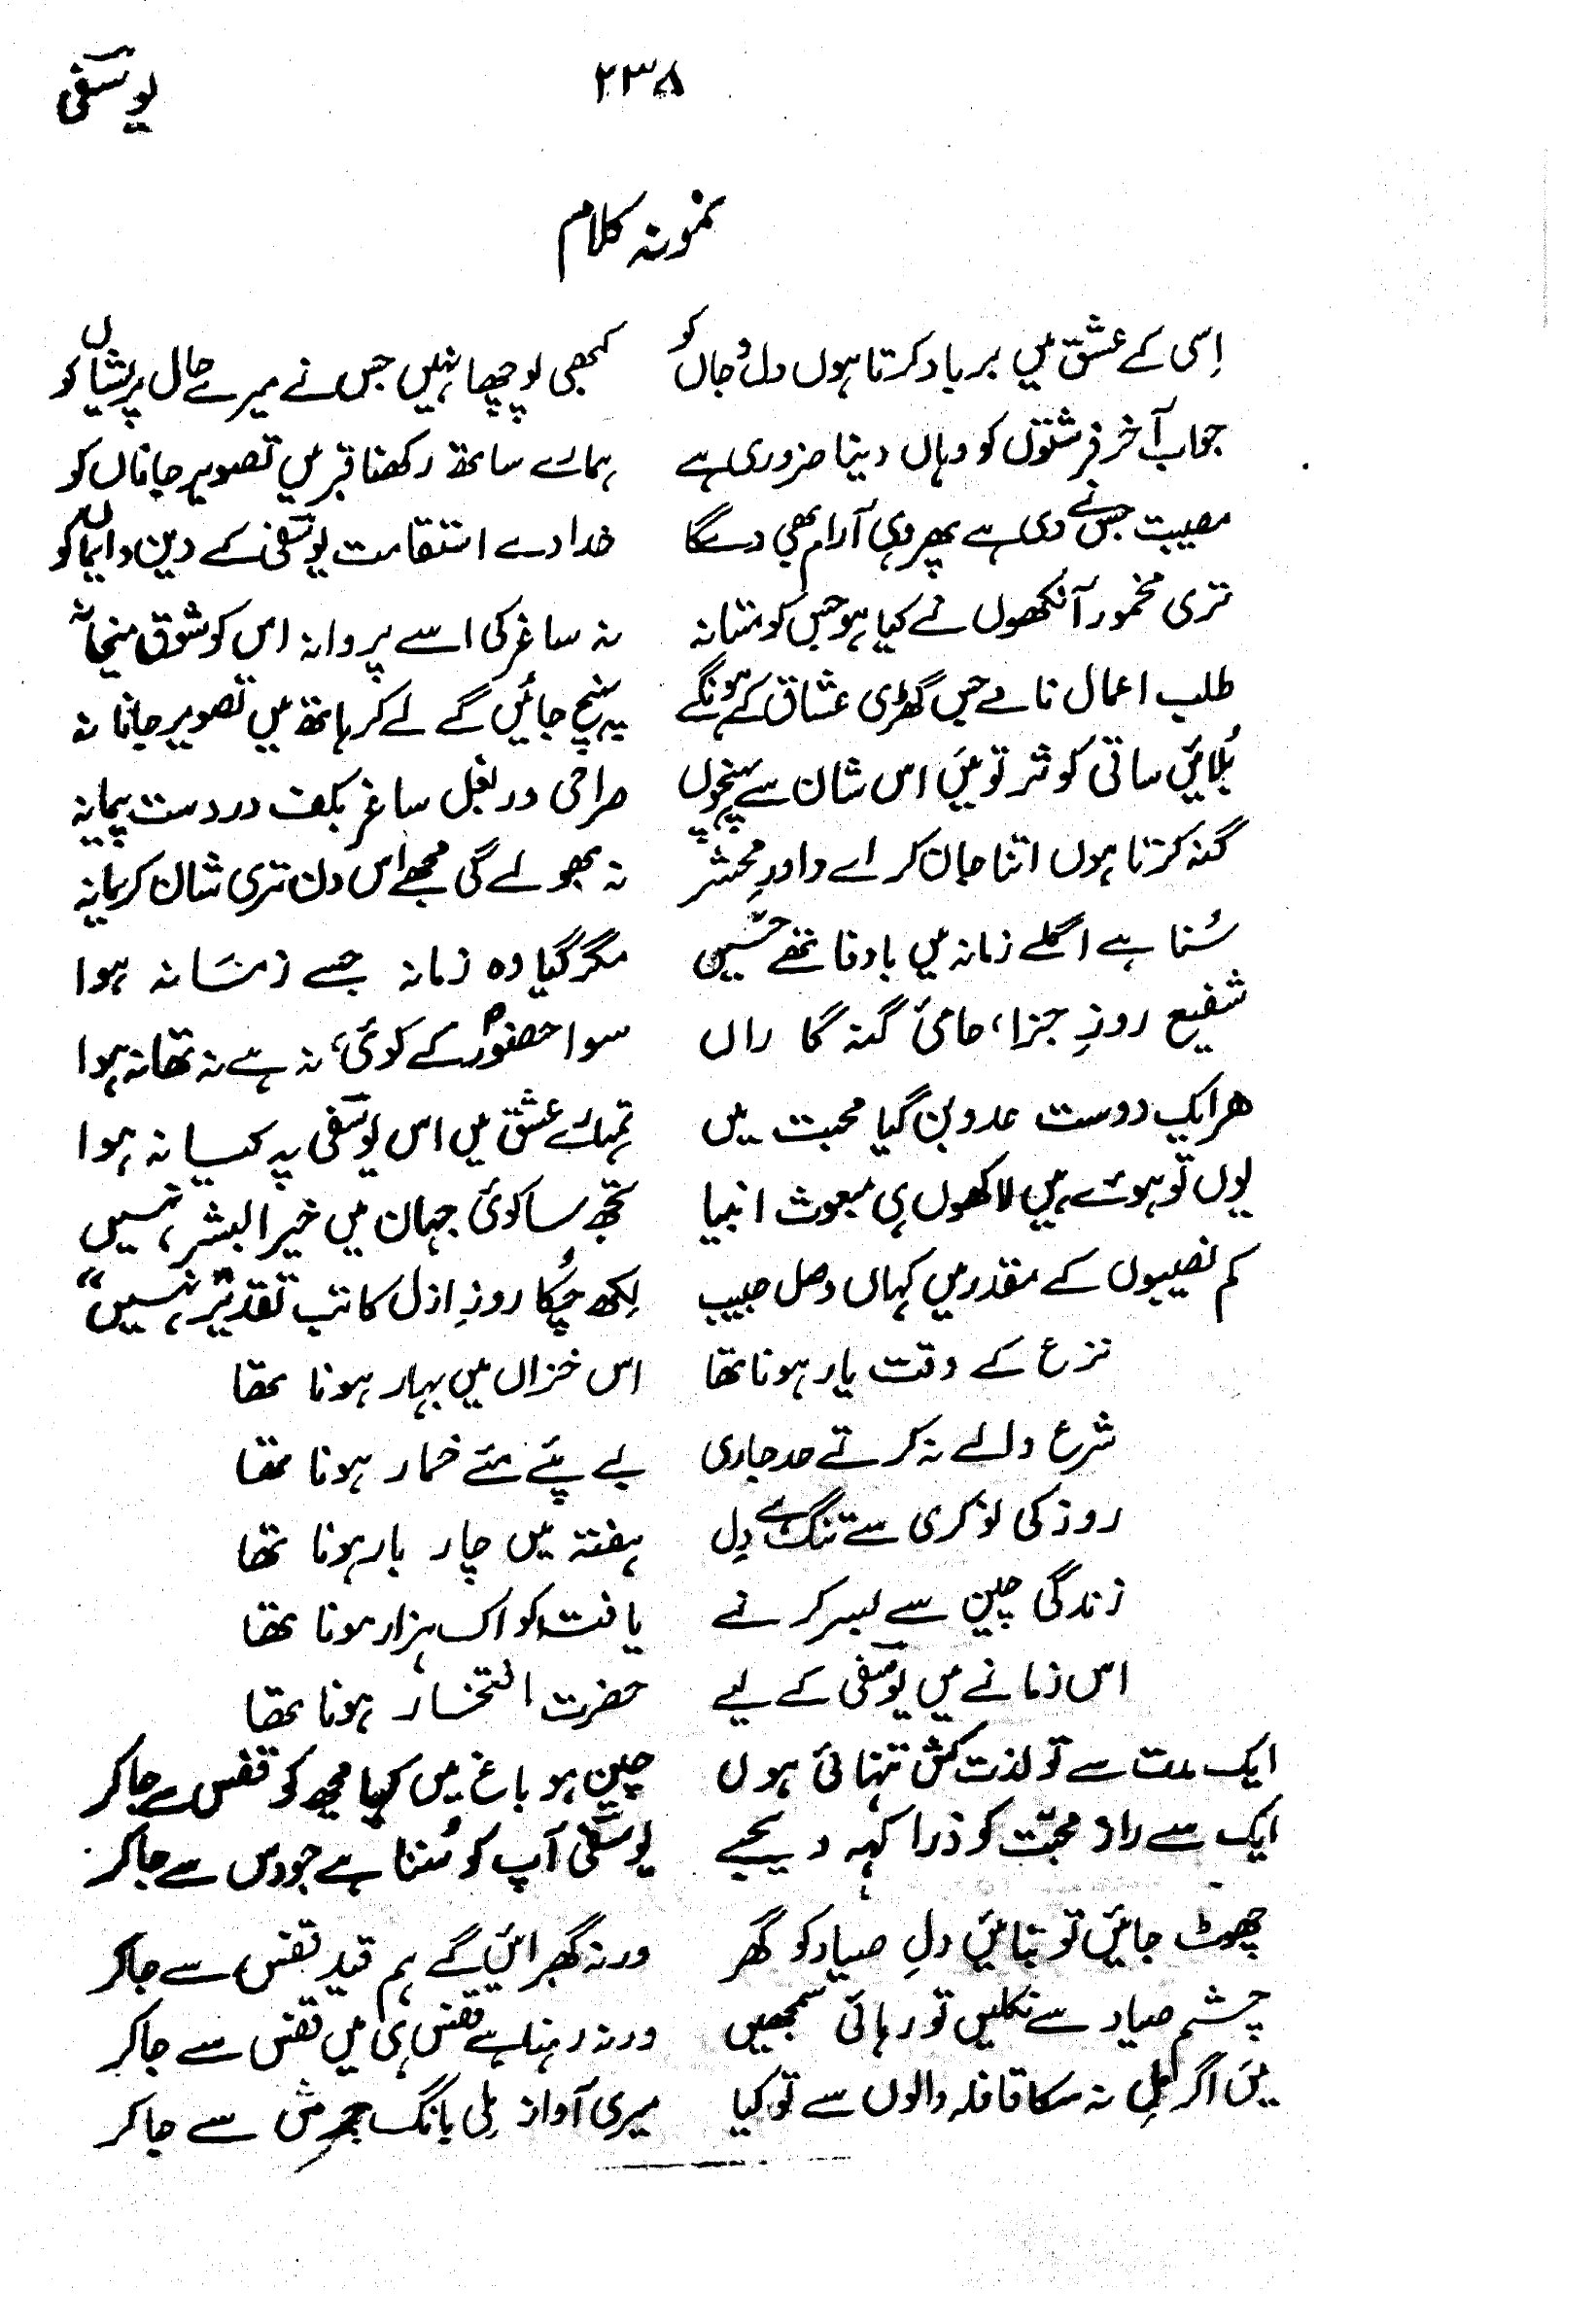 یوسفی ۲۳۸
نمونہ کلام
اِسی کے عشق میں برباد کرتا ہوں دل و جاں کو کبھی پوچھا نہیں جس نے میرے حال پریشاں کو
جواب آخر فرشتوں کو وہاں دینا ضروری ہے ہمارے ساتھ رکھنا قبر میں تصویر جاناں کو
مصیبت جس نے دی ہے پھر وہی آرام بھی دے گا خدا دے استقامت یوسفی کے دین و ایماں کو
تری مخمور آنکھوں نے کیا ہو جس کو مستانہ نہ ساغر کی اسے پروا نہ اس کو شوق میخانہ
طلب اعمال نامے جس گھڑی عشاق کے ہونگے پہنچ جائیں گے لے کر ہاتھ میں تصویر جانانہ
بُلائیں ساقی کوثر تو میں اس شان سے پہنچوں صراحی در بغل ساغر بکف در دست پیمانہ
گنہ کرتا ہوں اتنا جان کر اے داورِ محشر نہ بھولے گی مجھے اس دن تری شان کریمانہ
سُنا ہے اگلے زمانہ میں باوفا تھے حسیں مگر گیا وہ زمانہ جسے زمانہ ہوا
شفیع روزِ جزا، حامئ گنہ گاراں سوا حضورؐ کے کوئی، نہ ہے نہ تھا نہ ہوا
ھر ایک دوست عدو بن گیا محبت میں تمہارے عشق میں اس یوسفی پہ کیا نہ ہوا
یوں تو ہوئے ہیں لاکھوں ہی مبعوث انبیا تجھ سا کوئی جہان میں خیر البشر نہیں
کم نصیبوں کے مقدر میں کہاں وصل حبیب لکھ چُکا روزِ ازل کاتب تقدیر "نہیں"
نزع کے وقت یار ہونا تھا اس خزاں میں بہار ہونا تھا
شرع والے نہ کرتے حد جاری بے پئے مئے خمار ہونا تھا
روز کی نوکری سے تنگ ہے دِل ہفتہ میں چار بار ہونا تھا
زندگی چین سے بسر کرنے یافت کو اک ہزار ہونا تھا
اس زمانے میں یوسفی کے لیے حضرت افتخار ہونا تھا
ایک مدت سے تو لذت کش تنہائی ہوں چین ہو باغ میں کیا مجھ کو قفس سے جا کر
ایک سے راز محبّت کو ذرا کہہ دیجیے یوسفی آپ کو سُنا ہے جو دس سے جا کر
چھوٹ جائیں تو بنائیں دلِ صیاد کو گھر ورنہ گھبرائیں گے ہم قید قفس سے جا کر
چشم صیاد سے نکلیں تو رہائی سمجھیں ورنہ رہنا ہے قفس ہی میں قفس سے جا کر
میں اگر مِل نہ سکا قافلہ والوں سے تو کیا میری آواز مِلی بانگ جرس سے جا کر